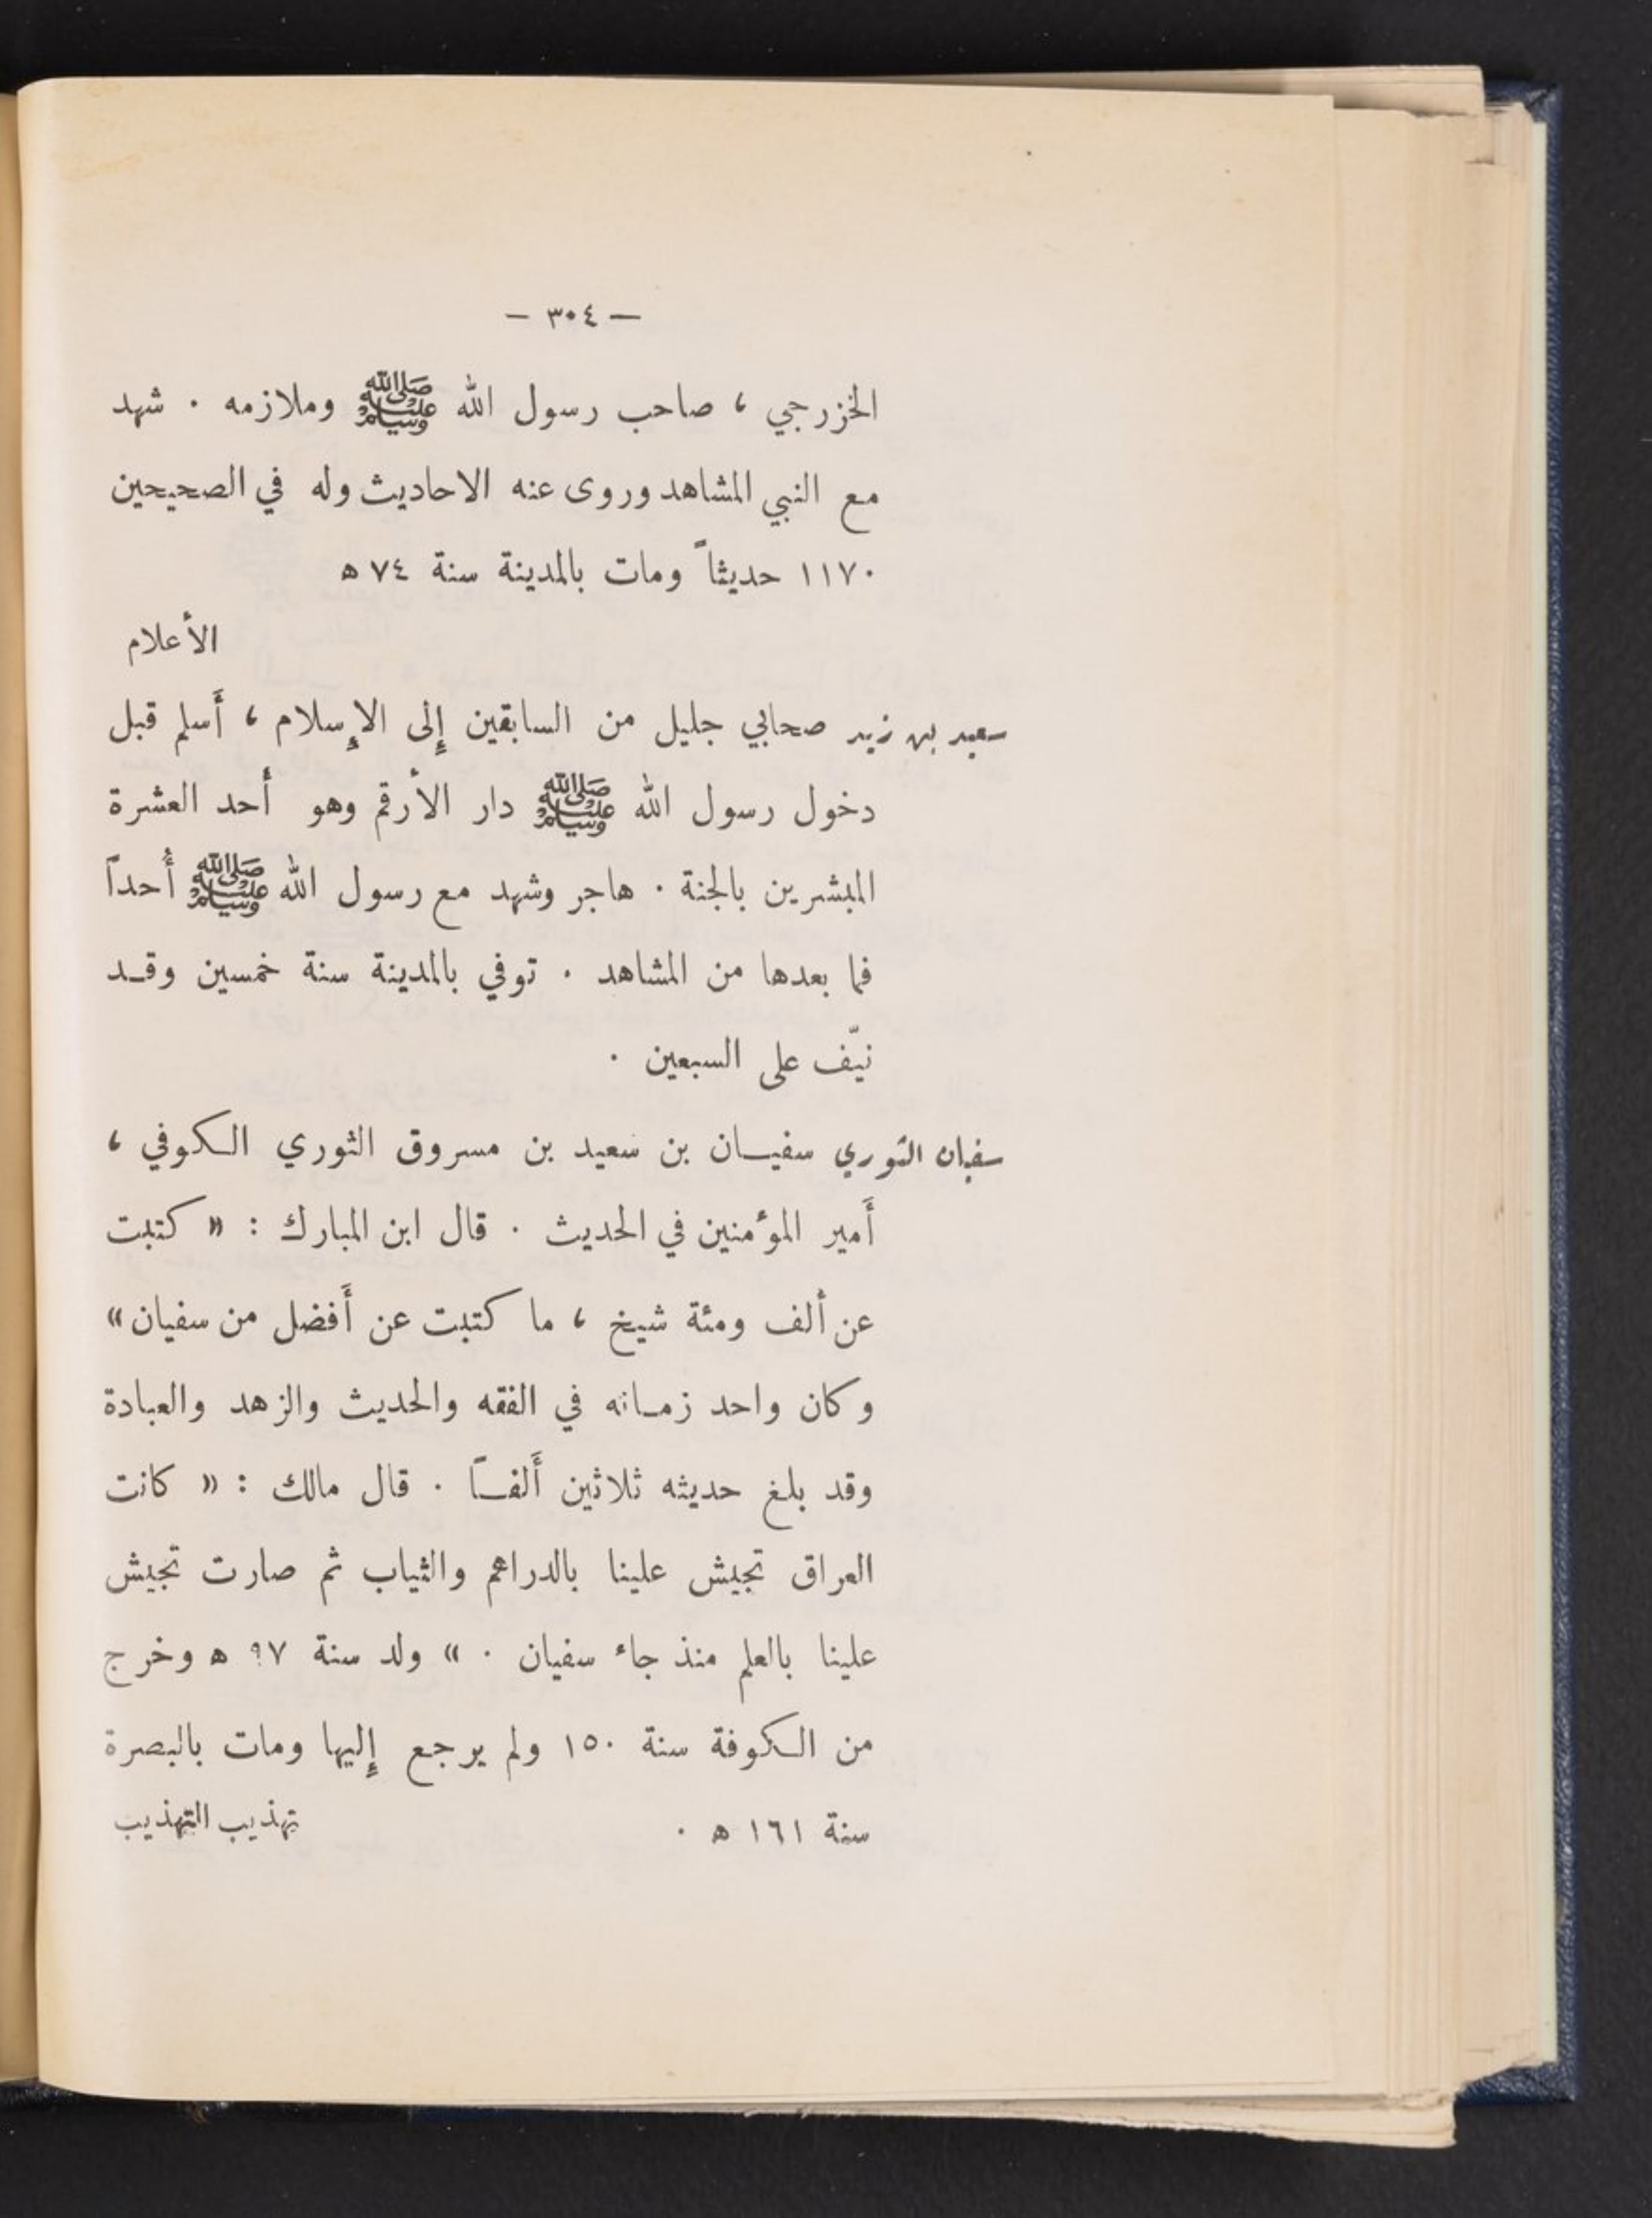 — ٣٠٤ —
الخزرجي ، صاحب رسول الله ﷺ وملازمه . شهد
مع النبي المشاهد وروى عنه الاحاديث وله في الصحيحين
١١٧٠ حديثاً ومات بالمدينة سنة ٧٤ ه
الأعلام
سعيد بن زيد صحابي جليل من السابقين إلى الإسلام ، أسلم قبل
دخول رسول الله ﷺ دار الأرقم وهو أحد العشرة
المبشرين بالجنة . هاجر وشهد مع رسول الله ﷺ أُحداً
فما بعدها من المشاهد . توفي بالمدينة سنة خمسين وقـد
نيّف على السبعين .
سفيان الثوري سفيـان بن سعيد بن مسروق الثوري الـكوفي ،
أَمير المؤمنين في الحديث . قال ابن المبارك : « كتبت
عن ألف ومئة شيخ ، ما كتبت عن أَفضل من سفيان »
وكان واحد زمـانه في الفقه والحديث والزهد والعبادة
وقد بلغ حديثه ثلاثين أَلفـاً . قال مالك : « كانت
العراق تجيش علينا بالدراهم والثياب ثم صارت تجيش
علينا بالعلم منذ جاء سفيان . » ولد سنة ٩٧ ه وخرج
من الـكوفة سنة ١٥٠ ولم يرجع إليها ومات بالبصرة
سنة ١٦١ ه . تهذيب التهذيب